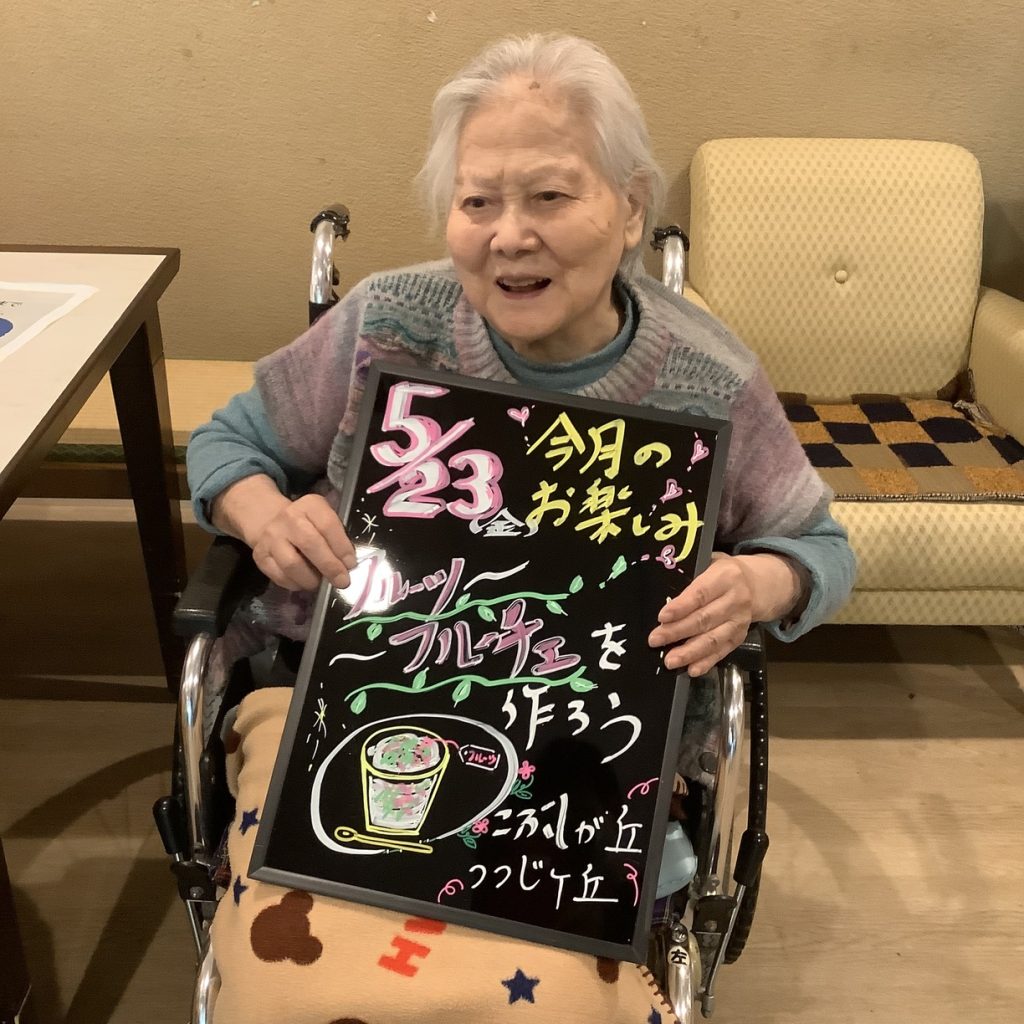 5/23
(金)
今月の
お楽しみ
フルーツ〜
〜フルーチェを
作ろう
フルーツ
こころしが丘
つつじヶ丘
左